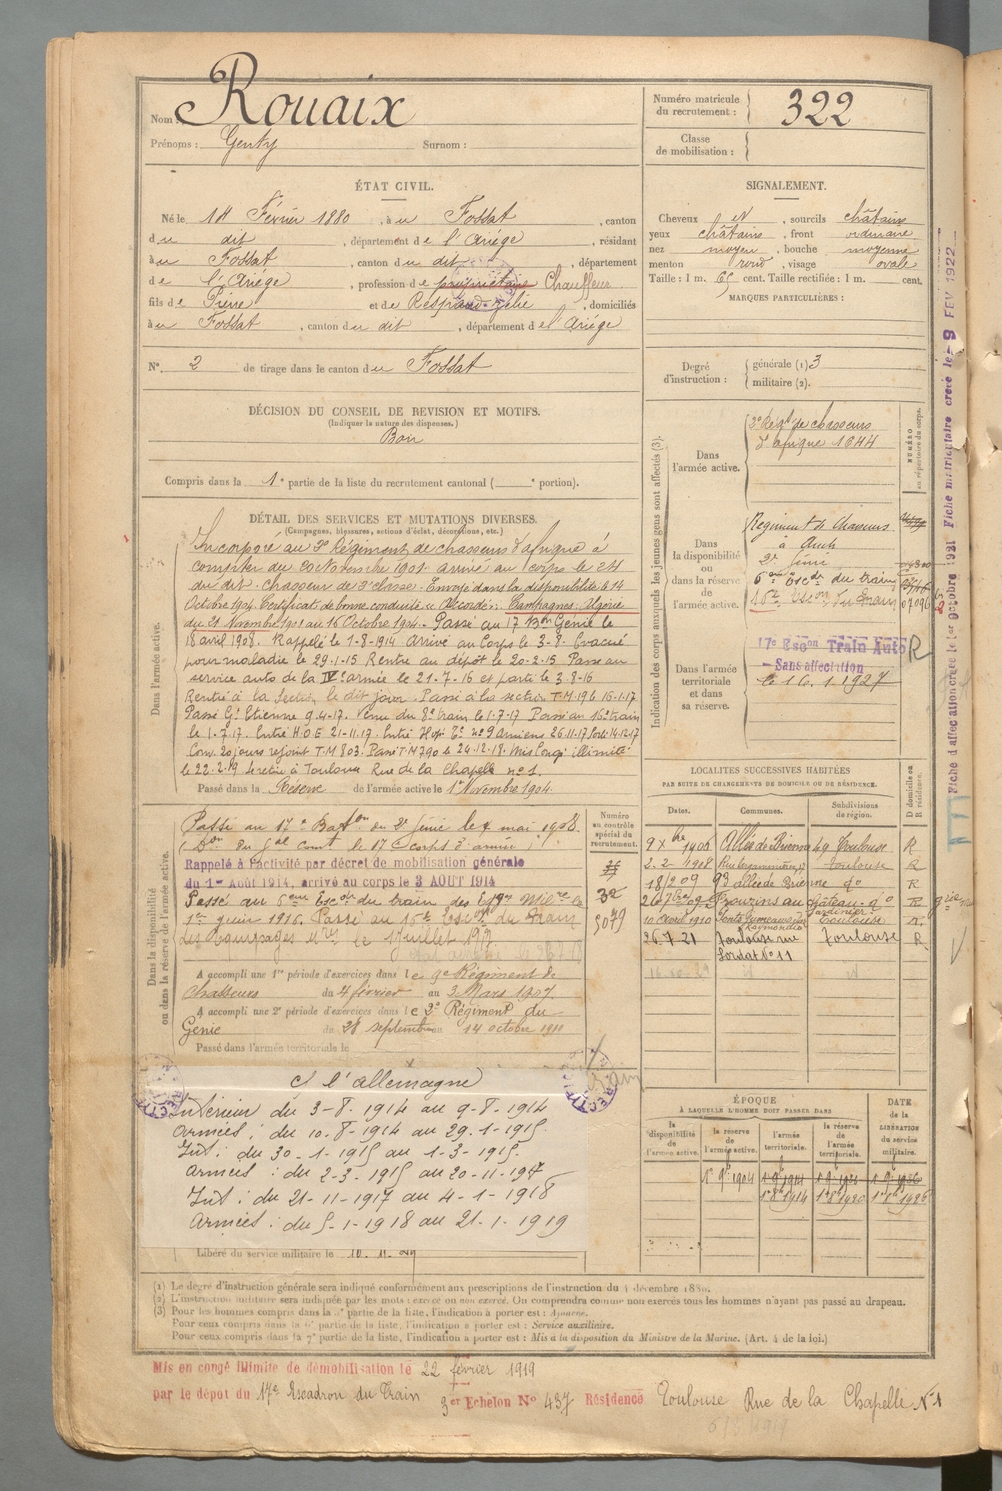 Nom : Rouaix
Prénoms : Genty Surnom :
Numéro matricule du recrutement : 322
Classe de mobilisation :
ÉTAT CIVIL.
Né le 14 Février 1880, à u Fossat, canton
du dit, département de l'Ariège, résidant
à u Fossat, canton du dit, département
de l'Ariège, profession de propriétaire Chauffeur
fils de Pierre et de Respaud Zélie, domiciliés
à u Fossat, canton du dit, département de l'Ariège
N° 2 de tirage dans le canton du Fossat
SIGNALEMENT.
Cheveux et sourcils châtains
yeux châtains, front ordinaire
nez moyen, bouche moyenne
menton rond, visage ovale
Taille : 1 m. 65 cent. Taille rectifiée : 1 m. cent.
MARQUES PARTICULIÈRES :
Degré d'instruction : générale (1) 3
militaire (2).
DÉCISION DU CONSEIL DE REVISION ET MOTIFS.
(Indiquer la nature des dispenses.)
Bon
Compris dans la 1e partie de la liste du recrutement cantonal ( e portion).
DÉTAIL DES SERVICES ET MUTATIONS DIVERSES.
(Campagnes, blessures, actions d'éclat, décorations, etc.)
Dans l'armée active.
Incorporé au 3e Régiment de chasseurs d'afrique à
compter du novembre 1901 arrivé au corps le 24
du dit. chasseur de 2e classe. Envoyé dans la disponibilité le 14
Octobre 1904. Certificat de bonne conduite accordé. Campagnes : Algérie
du 21 Novembre 1901 au 16 Octobre 1904. Passé au 17 Bon Génie le
18 avril 1908. Rappelé le 1-8-1914 Arrivé au Corps le 3-8- Evacué
pour maladie le 29-1-15 Rentré au dépôt le 20-2-15 Passé au
service auto de la IVe armée le 21-7-16 et parti le 3-8-16
Rentré à la Section le dit jour. Passé à la section T.M 196 16-1-17
Passé Gt Etienne 9-4-17. Venu du 8e train le 1-7-17 Passé au 16e train
le 1-7-17. Entré H.O.E 21-11-17. Entré n° 9 Amiens 26-11-17 Sorti 14-12-17
Conv. 20 jours rejoint T.M 803. Passé T.M 790 le 24-12-18. Mis congé illimité
le 22-2-19 se retire à Toulouse Rue de la Chapelle n° 1.
Passé dans la Réserve de l'armée active le 1er Novembre 1904.
Indication des corps auxquels les jeunes gens sont affectés (3).
NUMÉRO au répertoire du corps.
Dans l'armée active.
3e Régt de chasseurs
d'afrique 1644
Dans la disponibilité ou dans la réserve de l'armée active.
Régiment de Chasseurs
à Auch
2e Génie
6eme Escon du train
16e Escon du train
Dans l'armée territoriale et dans sa réserve.
17e Escon Train Auto R
- Sans affectation
le 16.1.1927
LOCALITÉS SUCCESSIVES HABITÉES
PAR SUITE DE CHANGEMENTS DE DOMICILE OU DE RÉSIDENCE.
Dates. Communes. Subdivisions de région. D domicile ou R résidence.
9 Xbre 1906 Allée de Brienne 49 Toulouse. R
2-2-1908 Toulouse R
18/2 09 93 allée de Brienne do R
10 Avril 1910 Toulouse R
26-7-21 Toulouse rue Toulouse R
N° 11
Dans la disponibilité ou dans la réserve de l'armée active.
Numéro au contrôle spécial du recrutement.
32
5079
Passé au 17e Baton du 2e Génie le 7 mai 1908.
Rappelé à l'activité par décret de mobilisation générale
du 1er Août 1914, arrivé au corps le 3 AOUT 1914
Passé au 6eme Escon du train des Eqges Mitres le
1er juin 1916. Passé au 16e Escon du Train
des Equipages Mres le 1 juillet 1917
A accompli une 1re période d'exercices dans le 9e Régiment de
Chasseurs du 4 février au 3 Mars 1907.
A accompli une 2e période d'exercices dans le 2e Régiment du
Génie du 28 septembre au 14 octobre 1911
Passé dans l'armée territoriale le
C/ l'allemagne
Intérieur du 3-8-1914 au 9-8-1914
Armées : du 10-8-1914 au 29-1-1915.
Int : du 30-1-1915 au 1-3-1915.
Armées : du 2-3-1915 au 20-11-1917
Int : du 21-11-1917 au 4-1-1918
Armées : du 5-1-1918 au 21-1-1919
Libéré du service militaire le 10.11.29
ÉPOQUE
À LAQUELLE L'HOMME DOIT PASSER DANS
la disponibilité de l'armée active. la réserve de l'armée active. l'armée territoriale. la réserve de l'armée territoriale. DATE de la LIBÉRATION du service militaire.
(1) Le degré d'instruction générale sera indiqué conformément aux prescriptions de l'instruction du 4 décembre 1889.
(2) L'instruction militaire sera indiquée par les mots : exercé ou non exercé. On comprendra comme non exercés tous les hommes n'ayant pas passé au drapeau.
(3) Pour les hommes compris dans la 5e partie de la liste, l'indication à porter est : Ajourné.
Pour ceux compris dans la 6e partie de la liste, l'indication à porter est : Service auxiliaire.
Pour ceux compris dans la 7e partie de la liste, l'indication à porter est : Mis à la disposition du Ministre de la Marine. (Art. 4 de la loi.)
Mis en congé illimité de démobilisation le 22 février 1919
par le dépôt du 17e Escadron du Train 3er Echelon N° 437 Résidence Toulouse Rue de la Chapelle N°1
Fiche d'affectation créée le 1er Octobre 1921 Fiche matriculaire créée le - 9 FEV 1922